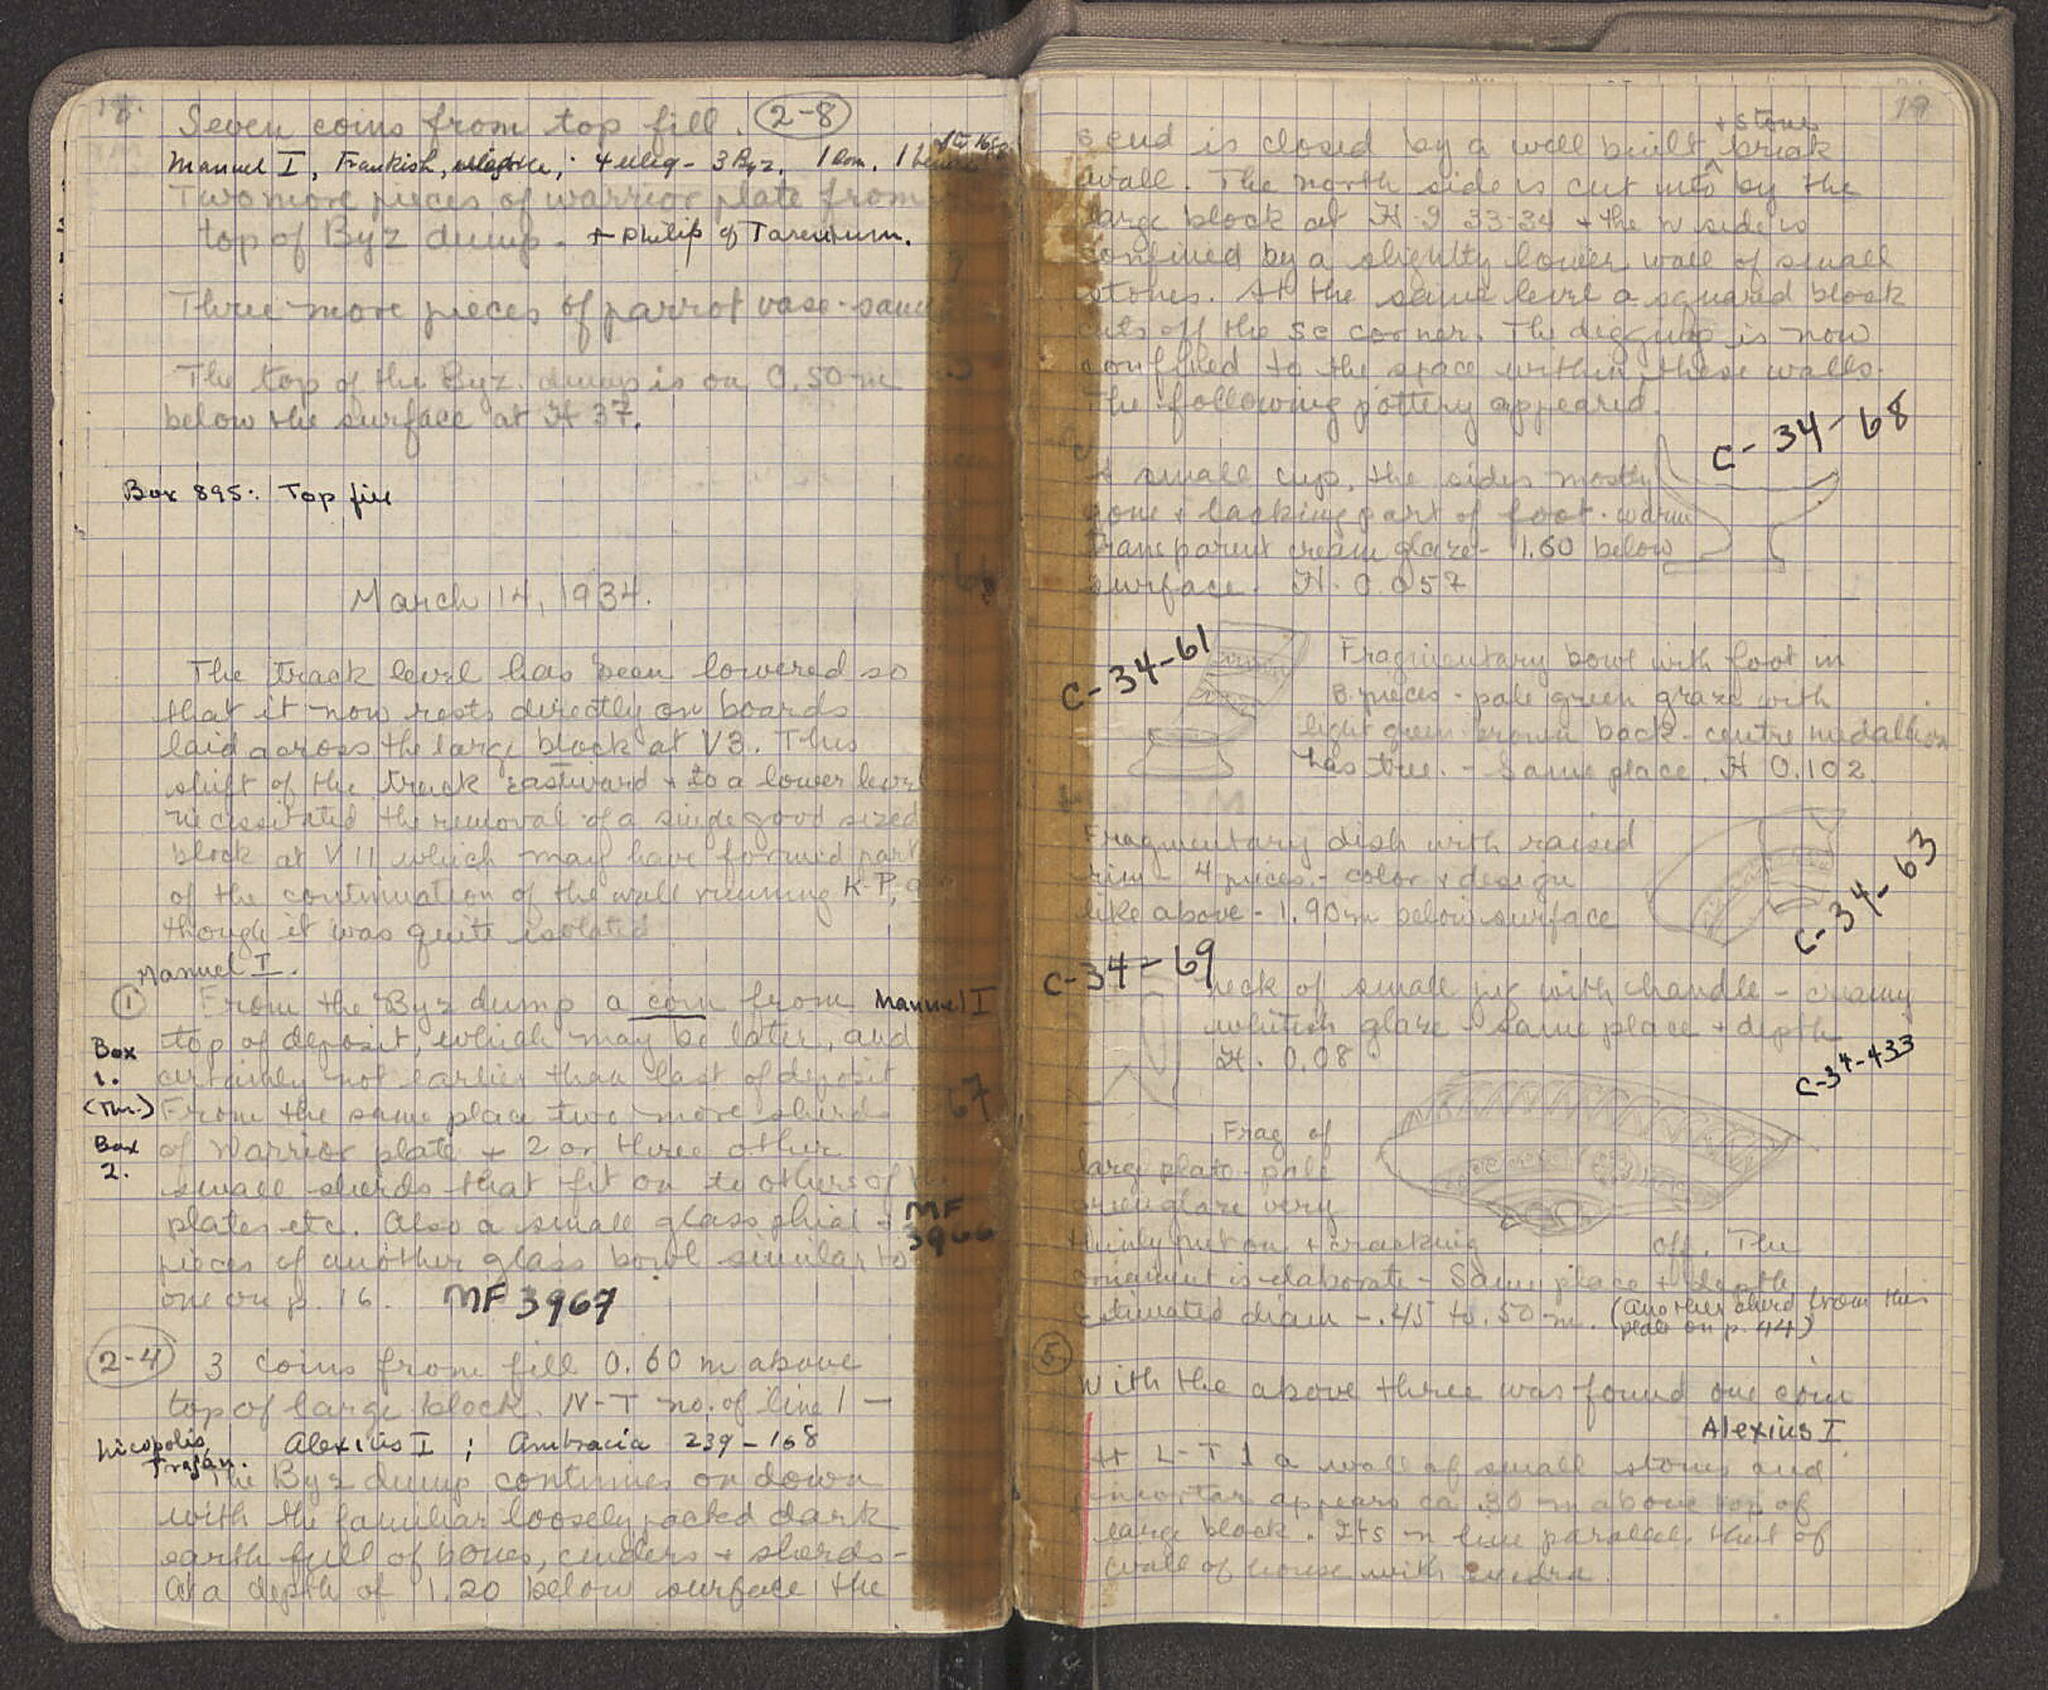 Seven coins from top fill. 2-8
Manuel I, Frankish, ; 4 illeg - 3 Byz, 1 Rom, 1
Two more pieces of warrior plate from
top of Byz dump. + Philip of Tarentum.
Three more pieces of parrot vase - same
The top of the Byz. dump is ca 0.50 m
below the surface at H 37.
Box 895: Top fill
March 14, 1934.
The track level has been lowered so
that it now rests directly on boards
laid across the large block at V3. This
shift of the track eastward + to a lower level
necessitated the removal of a single good sized
block at V 11 which may have formed part
of the continuation of the wall running K-P,
though it was quite isolated
Manuel I.
1 From the Byz dump a coin from Manuel I
top of deposit, which may be later, and
Box 1. certainly not earlier than last of deposit.
(Thr.) From the same place two more sherds
Box 2. of Warrior plate + 2 or three other
small sherds that fit on to others of the
plates etc. Also a small glass phial + MF 3966
pieces of another glass bowl similar to
one on p. 16. MF 3967
2-4 3 coins from fill 0.60 m above
top of large block. N-T no. of line 1 —
Nicopolis, Trajan. Alexius I ; Ambracia 239-168
The Byz dump continues on down
with the familiar loosely packed dark
earth full of bones, cinders + sherds -
At a depth of 1.20 below surface the
19
s end is closed by a well built + stone brick
wall. The north side is cut into by the
large block at H-J 33-34 + the w side is
confined by a slightly lower wall of small
stones. At the same level a squared block
cuts off the se corner. The digging is now
confined to the space within these walls.
The following pottery appeared.
C-34-68
A small cup, the sides mostly
gone + lacking part of foot. warm
transparent cream glaze - 1.60 below
surface. H. 0.057
C-34-61
Fragmentary bowl with foot in
8 pieces - pale green glaze with
light green brown back - centre medallion
has tree. - Same place. H 0.102.
Fragmentary dish with raised
rim - 4 pieces - color + design
like above - 1.90 m below surface
C-34-63
C-34-69
neck of small jug with handle - creamy
whitish glaze - same place + depth
H. 0.08
C-34-433
Frag of
large plate - pale
green glaze very
thinly put on + cracking off. The
ornament is elaborate - Same place + depth
Estimated diam - .45 to .50 m. (another sherd from this
plate on p. 44)
5
With the above three was found one coin
Alexius I
At L-T 1 a wall of small stones and
mortar appears ca .30 m above top of
large block. Its n line parallels that of
wall of house with exedra.